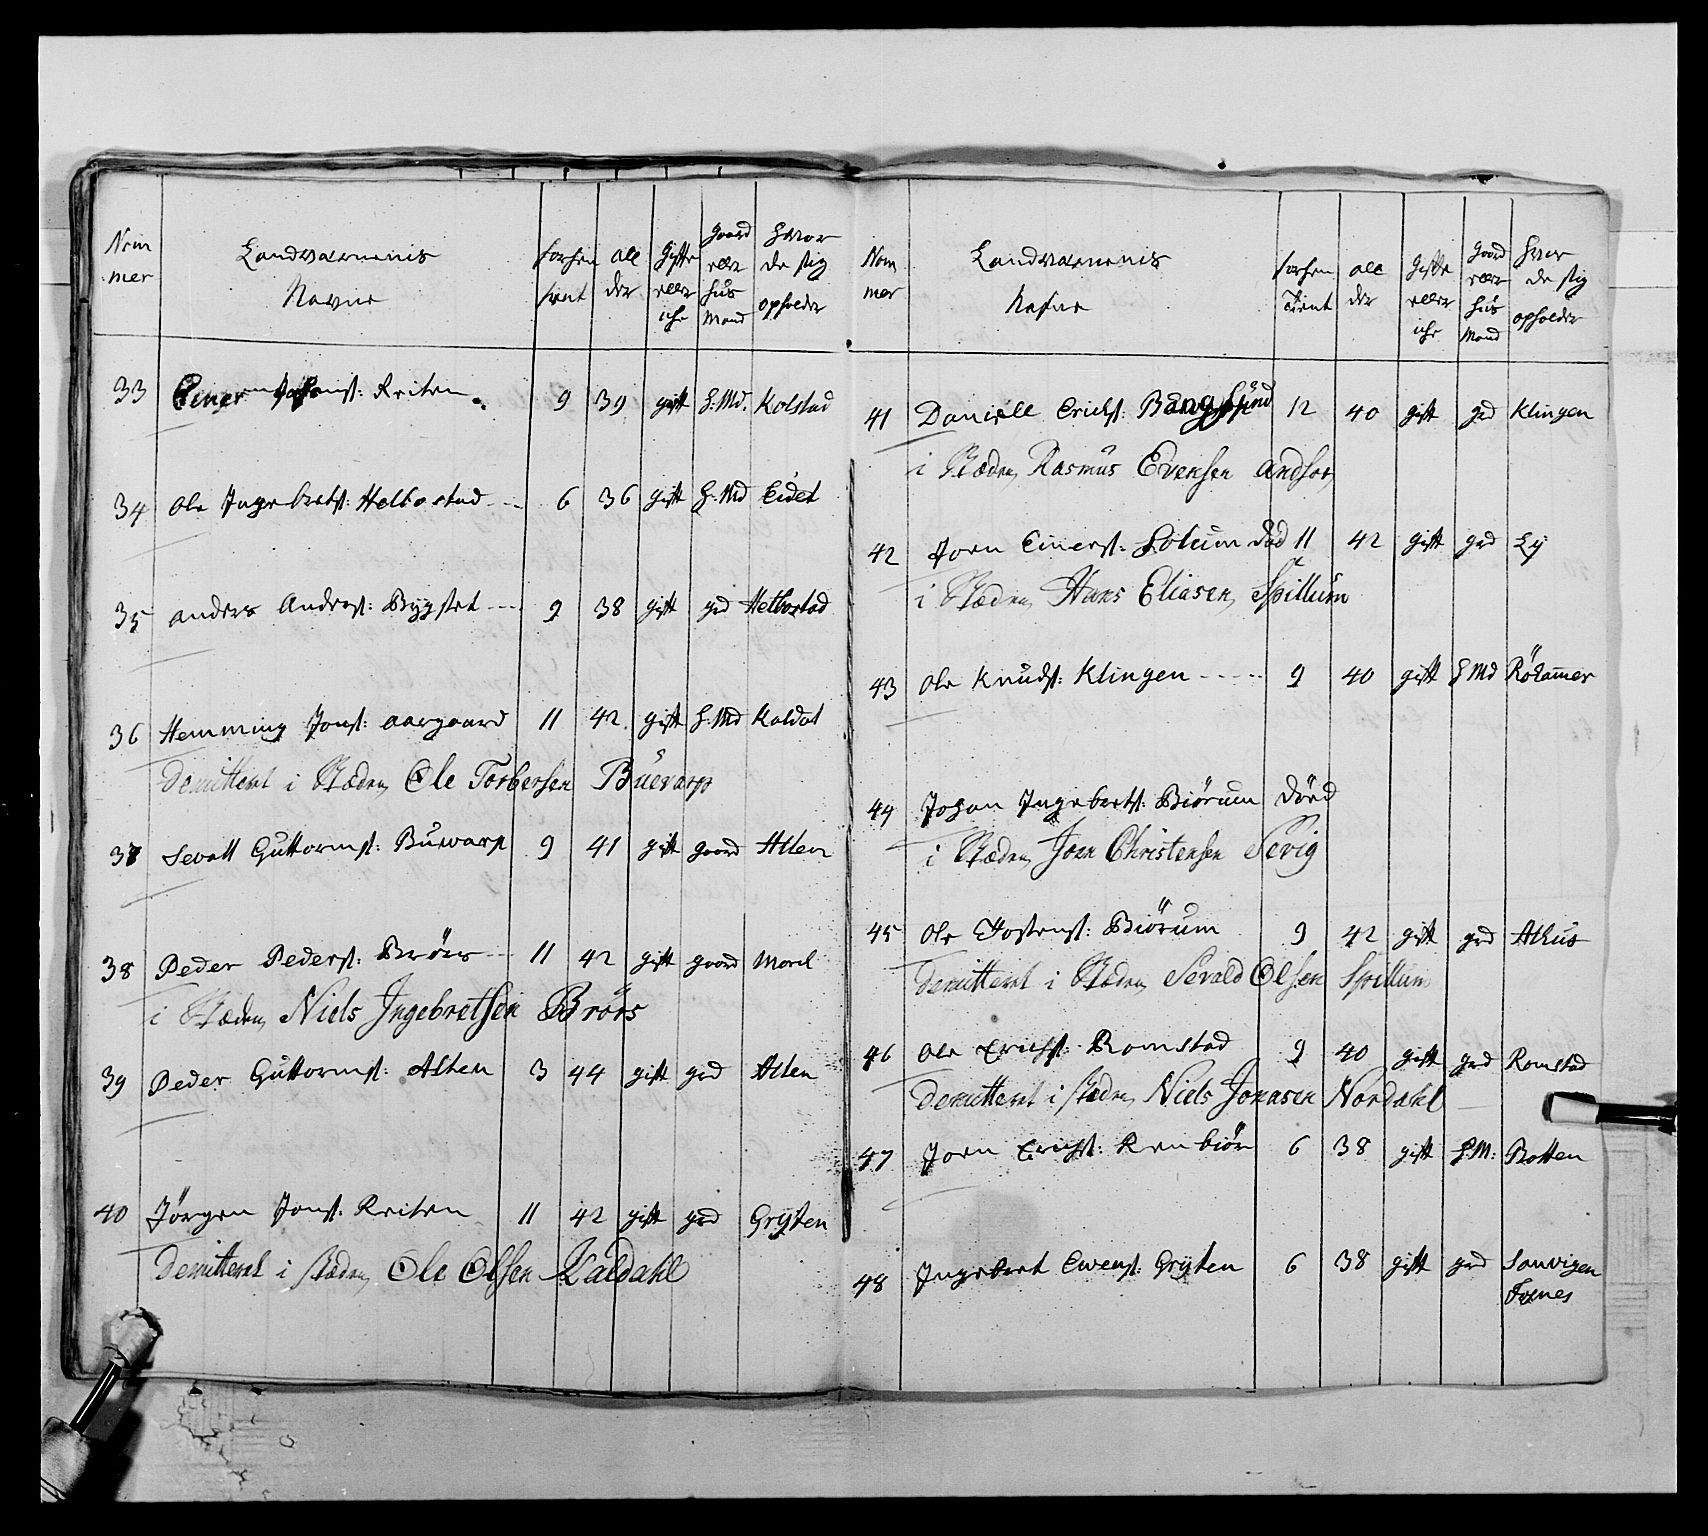 Nom
mer
Landværnenis
Navne
forhen
tient
all
der
Gifte
eller
iche
gaard
eller
huus
Mand
Hvor
de sig
opholder
33 Einer Kriten 9 39 gift H:Md. Kolstad
34 Ole Ingebretß: Helbostad 6 36 gift H:Md Eidet
35 anders Anderß: Bygstet 9 38 gift grd Helbostad
36 Hemming Jonß: aargaard 11 42 gift H:Md Kaldal
demitteret i Stæden Ole Torbersen Buevarp
37 Sevatt Guttormß: Buevarp 9 41 gift gaard Alten
38 Peder Pederß: Brörs 11 42 gift gaard Morel
i Stæden Niels Ingebretsen Brörs
39 Peder Guttormß: Alten 3 44 gift grd Alten
40 Jörgen Jonß: Kriten 11 42 gift grd Gryten
demitteret i stæden Ole Olsen Kaldahl
Nom
mer
Landværnenis
Nafne
forhen
Tient
all
der
Gifte
eller
iche
gaard
eller
huus
Mand
Hvor
de sig
opholder
41 Daniell Erichß: Bangsund 12 40 gift grd Klingen
i Stæden Rasmus Evensen Andsor
42 Joen Einerß: Solum död 11 42 gift grd Ly
i Stæden Hans Eliasen Spillum
43 Ole Knudß: Klingen 9 40 gift H Md Rödammer
44 Johan Ingebretß: Biörum Dörd
i Stæden Joen Christensen Sevig
45 Ole Jostenß: Biörum 9 42 gift grd Alhus
demitteret i Stæden Sevald Olsen Spillum
46 Ole Erichß: Romstad 9 40 gift grd Romstad
demitteret i stæden Niels Jonasen Nordahl
47 Joen Erichß: Renbiör 6 38 gift H.M: Botten
48 Ingebret Evenß: Gryten 6 38 gift grd Sanvigen
Fosnes